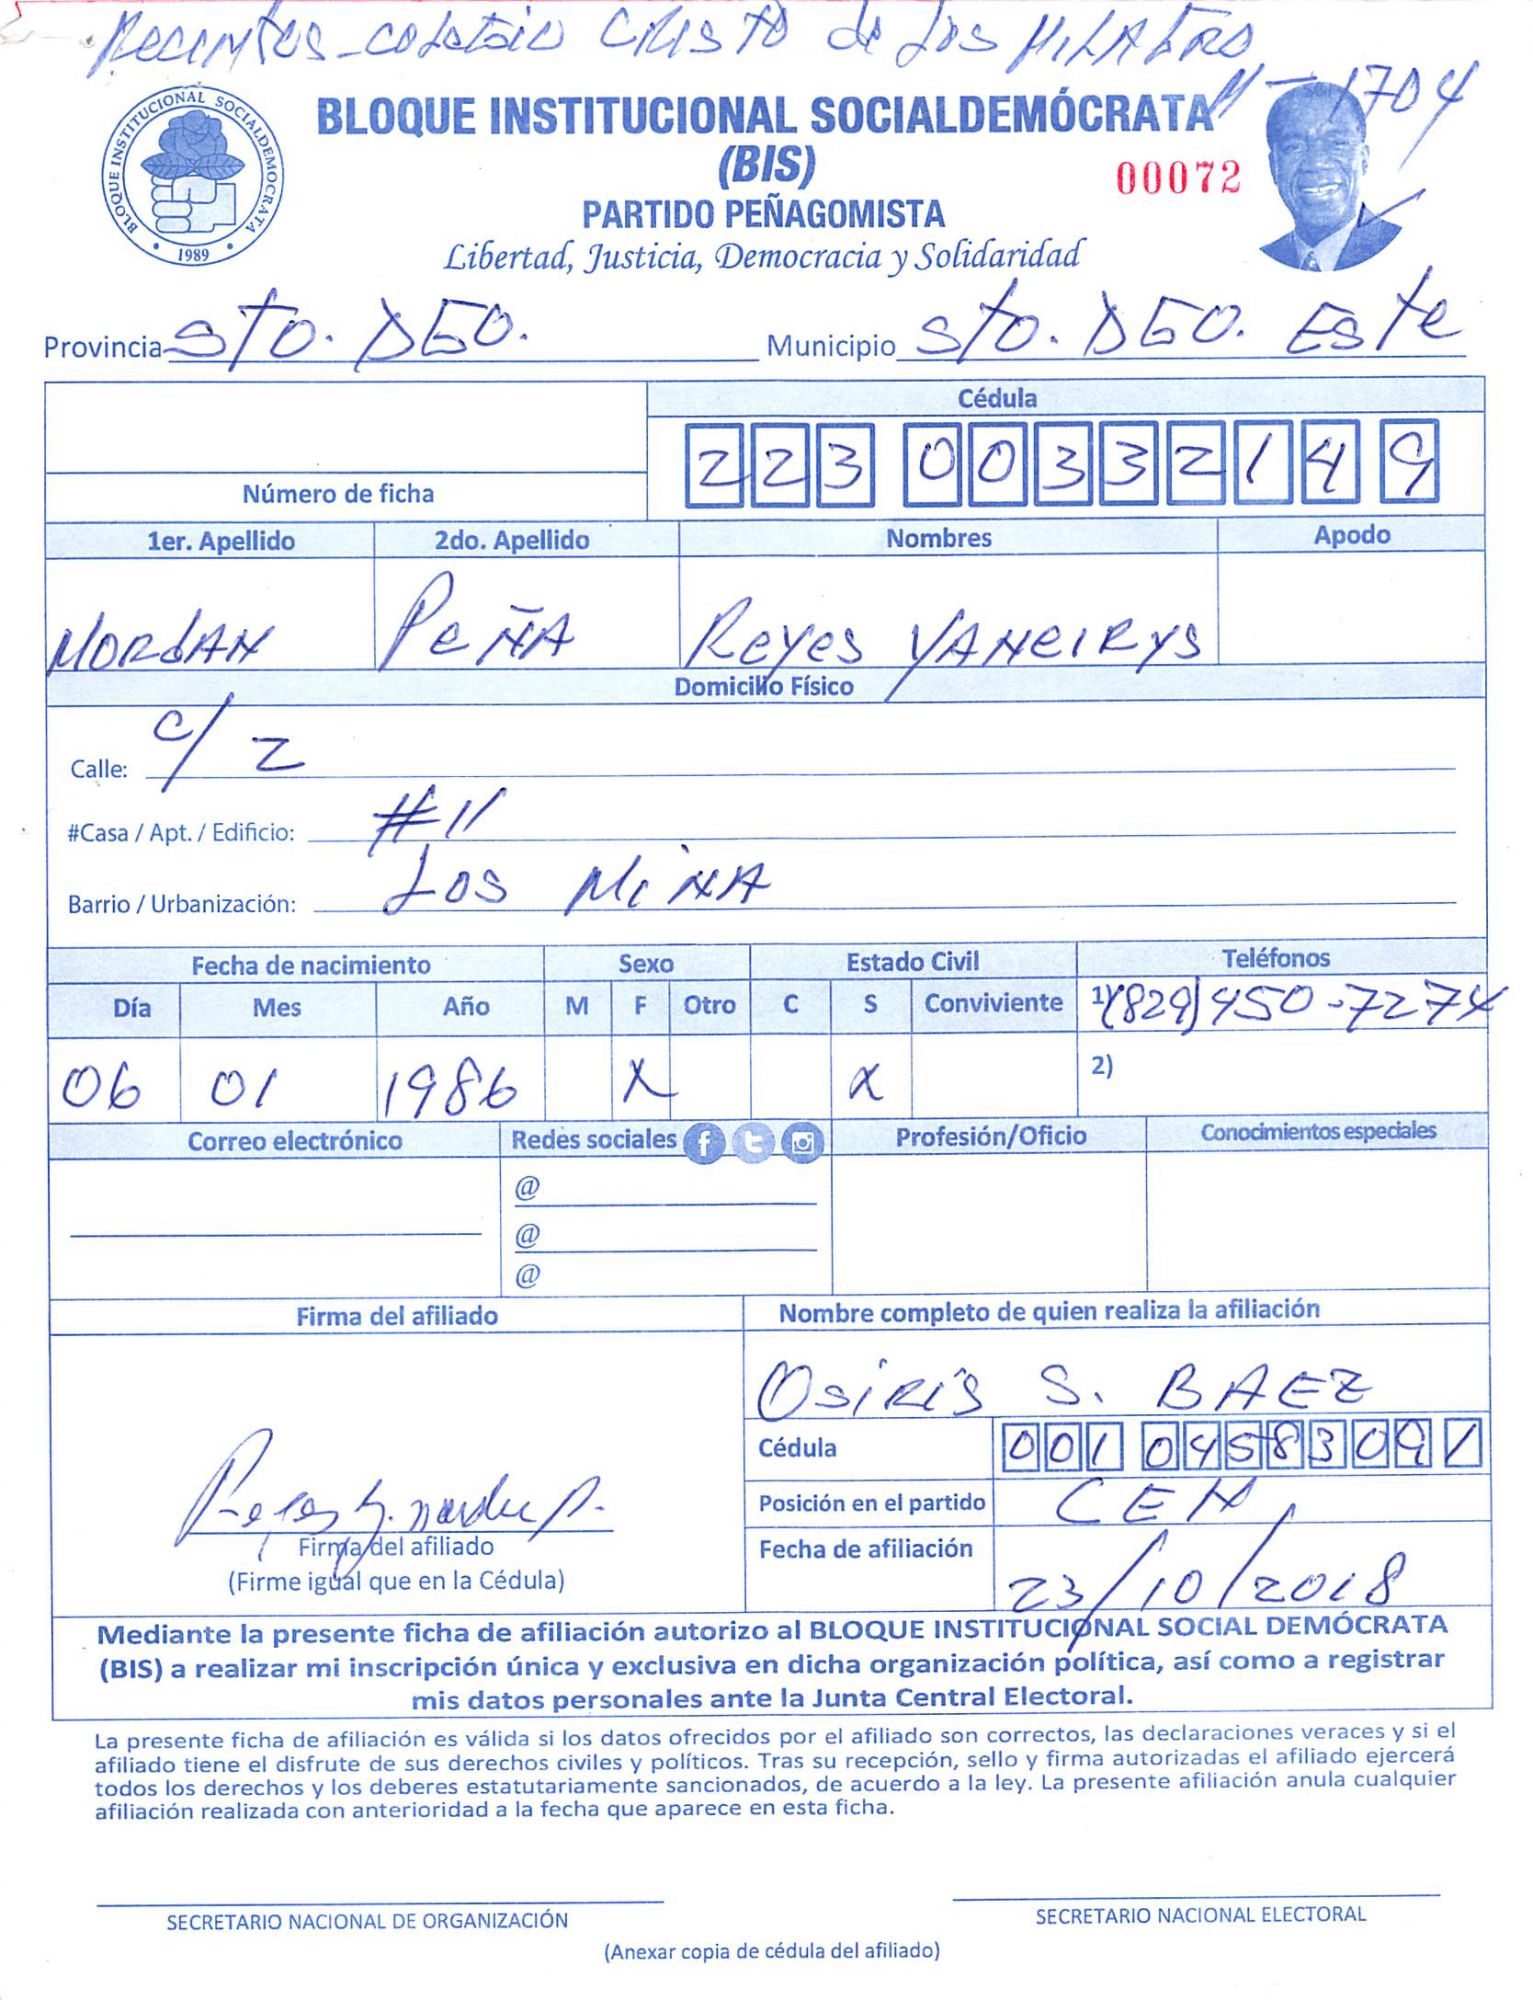 Recintos - Colegio Cristo de Los Milagro
M-1704
BLOQUE INSTITUCIONAL SOCIALDEMÓCRATA
(BIS)
00072
PARTIDO PEÑAGOMISTA
Libertad, Justicia, Democracia y Solidaridad
BLOQUE INSTITUCIONAL SOCIALDEMOCRATA
1989
Provincia Sto. Dgo. Municipio Sto. Dgo. Este
Cédula
223 0033214 9
Número de ficha
1er. Apellido 2do. Apellido Nombres Apodo
Mordan Peña Reyes Yaneirys
Domicilio Físico
Calle: c/ 2
#Casa / Apt. / Edificio: #11
Barrio / Urbanización: Los Mina
Fecha de nacimiento Sexo Estado Civil Teléfonos
Día Mes Año M F Otro C S Conviviente 1) (829) 450-7274
06 01 1986 X X 2)
Correo electrónico Redes sociales f t Profesión/Oficio Conocimientos especiales
@
@
@
Firma del afiliado Nombre completo de quien realiza la afiliación
Osiris S. BAEZ
Cédula 001 0458309 1
Posición en el partido CEN
Firma del afiliado
Fecha de afiliación 23/10/2018
(Firme igual que en la Cédula)
Mediante la presente ficha de afiliación autorizo al BLOQUE INSTITUCIONAL SOCIAL DEMÓCRATA
(BIS) a realizar mi inscripción única y exclusiva en dicha organización política, así como a registrar
mis datos personales ante la Junta Central Electoral.
La presente ficha de afiliación es válida si los datos ofrecidos por el afiliado son correctos, las declaraciones veraces y si el
afiliado tiene el disfrute de sus derechos civiles y políticos. Tras su recepción, sello y firma autorizadas el afiliado ejercerá
todos los derechos y los deberes estatutariamente sancionados, de acuerdo a la ley. La presente afiliación anula cualquier
afiliación realizada con anterioridad a la fecha que aparece en esta ficha.
SECRETARIO NACIONAL DE ORGANIZACIÓN SECRETARIO NACIONAL ELECTORAL
(Anexar copia de cédula del afiliado)